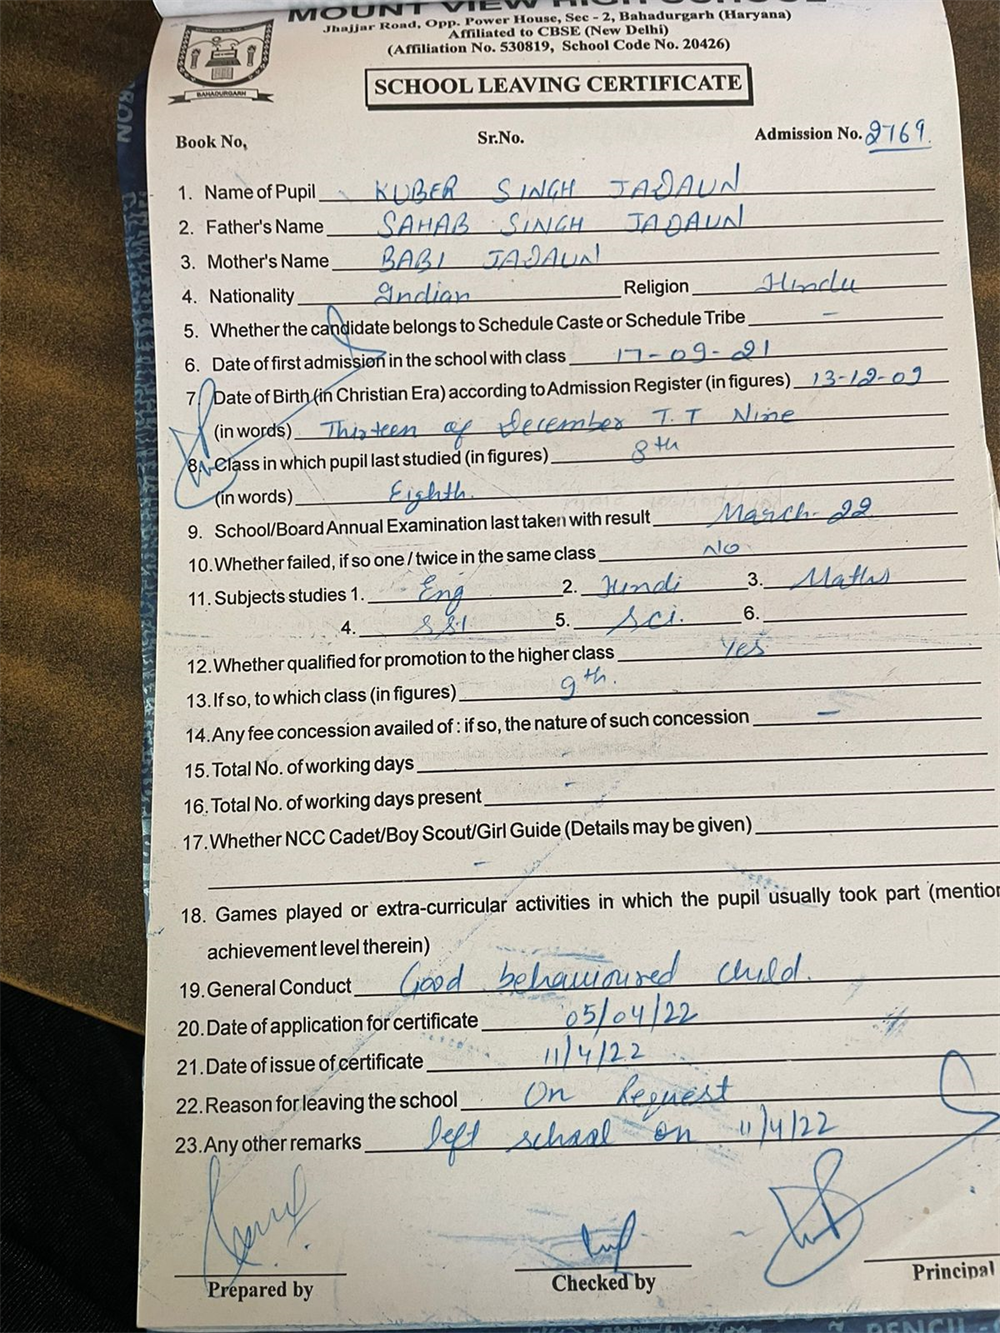 MOUNT VIEW HIGH SCHOOL
Jhajjar Road, Opp. Power House, Sec - 2, Bahadurgarh (Haryana)
Affiliated to CBSE (New Delhi)
(Affiliation No. 530819, School Code No. 20426)
BAHADURGARH
SCHOOL LEAVING CERTIFICATE
Book No, Sr.No. Admission No. 2769
1. Name of Pupil KUBER SINGH JADAUN
2. Father's Name SAHAB SINGH JADAUN
3. Mother's Name BABI JADAUN
4. Nationality Indian Religion Hindu
5. Whether the candidate belongs to Schedule Caste or Schedule Tribe -
6. Date of first admission in the school with class 17-09-21
7. Date of Birth (in Christian Era) according to Admission Register (in figures) 13-12-09
(in words) Thirteen of December T.T Nine
8. Class in which pupil last studied (in figures) 8th
(in words) Eighth.
9. School/Board Annual Examination last taken with result March-22
10. Whether failed, if so one / twice in the same class No
11. Subjects studies 1. Eng 2. Hindi 3. Maths
4. SSt 5. Sci. 6.
12. Whether qualified for promotion to the higher class Yes
13. If so, to which class (in figures) 9th.
14. Any fee concession availed of : if so, the nature of such concession -
15. Total No. of working days -
16. Total No. of working days present -
17. Whether NCC Cadet/Boy Scout/Girl Guide (Details may be given)
-
18. Games played or extra-curricular activities in which the pupil usually took part (mention
achievement level therein)
19. General Conduct Good behavioured child.
20. Date of application for certificate 05/04/22
21. Date of issue of certificate 11/4/22
22. Reason for leaving the school On Request
23. Any other remarks left school on 11/4/22
Prepared by Checked by Principal
PENCIL